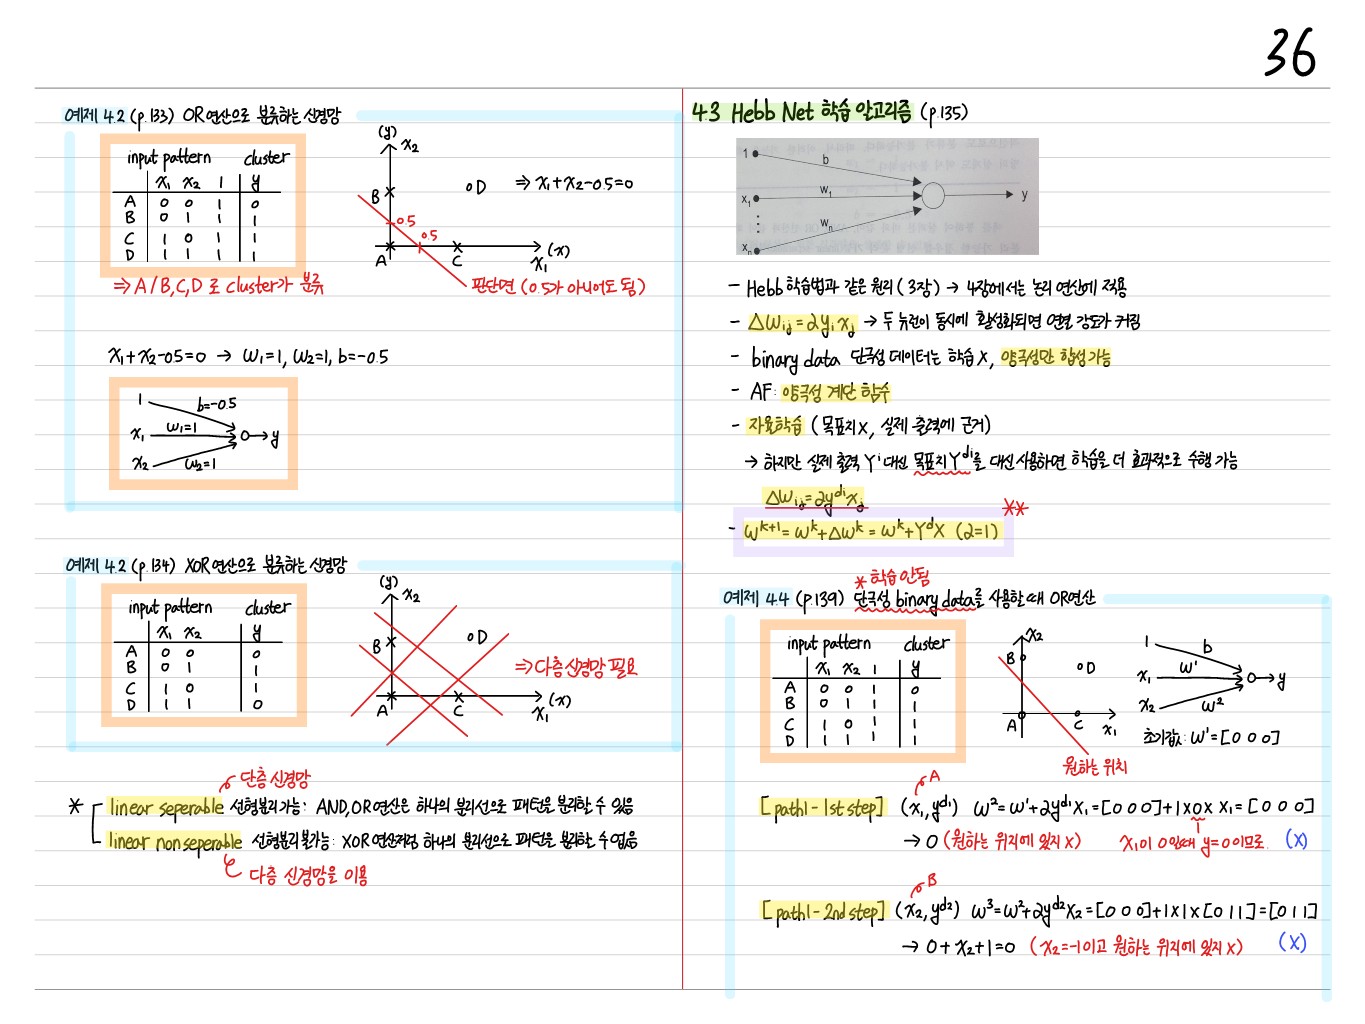 36
예제 4.2 (p.133) OR연산으로 분류하는 신경망
input pattern cluster
x₁ x₂ 1 y
A 0 0 1 0
B 0 1 1 1
C 1 0 1 1
D 1 1 1 1
⇒ A / B,C,D 로 cluster가 분류
(y)
x₂
B
D
0.5
0.5
A
C
x₁
(x)
⇒ x₁+x₂-0.5=0
판단면 (0.5가 아니어도 됨)
x₁+x₂-0.5=0 → w₁=1, w₂=1, b=-0.5
1
b=-0.5
x₁
w₁=1
y
x₂
w₂=1
예제 4.2 (p.134) XOR연산으로 분류하는 신경망
input pattern cluster
x₁ x₂ y
A 0 0 0
B 0 1 1
C 1 0 1
D 1 1 0
(y)
x₂
B
D
A
C
x₁
(x)
⇒ 다층 신경망 필요
단층 신경망
* linear seperable 선형분리가능: AND, OR연산은 하나의 분리선으로 패턴을 분리할 수 있음
linear nonseperable 선형분리불가능: XOR연산처럼 하나의 분리선으로 패턴을 분리할 수 없음
다층 신경망을 이용
4.3 Hebb Net 학습 알고리즘 (p.135)
1
b
x₁
w₁
y
wₙ
xₙ
- Hebb 학습법과 같은 원리 (3장) → 4장에서는 논리 연산에 적용
- △wᵢⱼ = 2yᵢxⱼ → 두 뉴런이 동시에 활성화되면 연결 강도가 커짐
- binary data 단극성 데이터는 학습 X, 양극성만 학습가능
- AF: 양극성 계단 함수
- 자율학습 (목표치 X, 실제 출력에 근거)
→ 하지만 실제 출력 Yⁱ 대신 목표치 Yᵈⁱ를 대신 사용하면 학습을 더 효과적으로 수행 가능
△wᵢⱼ = 2yᵈⁱxⱼ
**
- wᵏ⁺¹ = wᵏ + △wᵏ = wᵏ + YᵈX (2=1)
* 학습 안됨
예제 4.4 (p.139) 단극성 binary data를 사용할 때 OR연산
input pattern cluster
x₁ x₂ 1 y
A 0 0 1 0
B 0 1 1 1
C 1 0 1 1
D 1 1 1 1
x₂
B
D
A
C
x₁
원하는 위치
1
b
x₁
w¹
y
x₂
w²
초기값: w¹=[0 0 0]
A
[path1 - 1st step] (x₁, yᵈ¹) w²=w¹+2yᵈ¹X₁=[0 0 0]+1x0x X₁=[0 0 0]
→ 0 (원하는 위치에 있지 X) x₁이 0일때 y=0이므로. (X)
B
[path1 - 2nd step] (x₂, yᵈ²) w³=w²+2yᵈ²X₂=[0 0 0]+1x1x[0 1 1]=[0 1 1]
→ 0+x₂+1=0 (x₂=-1이고 원하는 위치에 있지 X) (X)